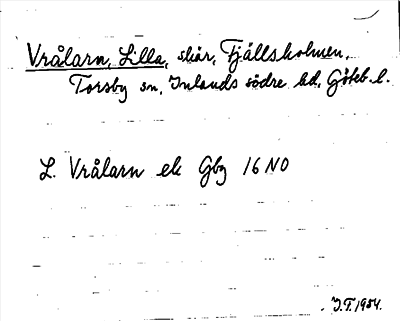 Vrålarn, Lilla, skär, Fjällsholmen,
Torsby sn, Inlands södre hd, Göteb. l.
L. Vrålarn ek Gbg 16 NO
J.T. 1954.